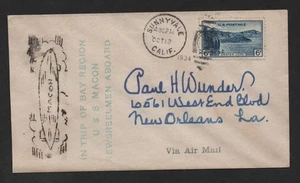 SUNNYVALE
OCT 12
CALIF.
1934
U.S. POSTAGE
6¢
MACON
IN TRIP OF BAY REGION
U S S MACON
NEWSREELMEN ABOARD
Paul H. Wunder.
10561 West End Blvd
New Orleans La.
Via Air Mail